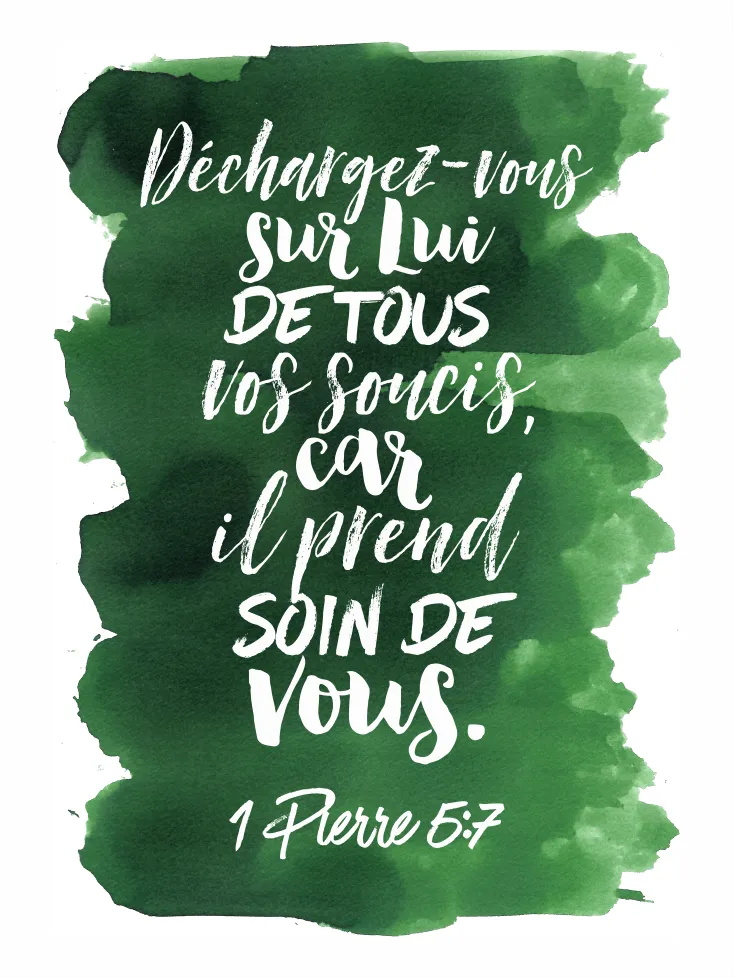 Déchargez-vous
sur Lui
DE TOUS
vos soucis,
car
il prend
SOIN DE
vous.
1 Pierre 5:7